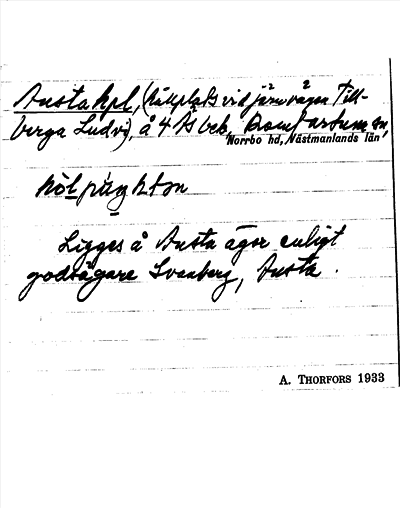 Austa hpl, (hållplats vid järnvägen Till-
berga Ludvi), å 4 As beb, Romfartuna sn,
Norrbo hd, Västmanlands län
höl pùŋkton
Ligges å Austa ägor enligt
godsägare Svanberg, Austa.
A. THORFORS 1933